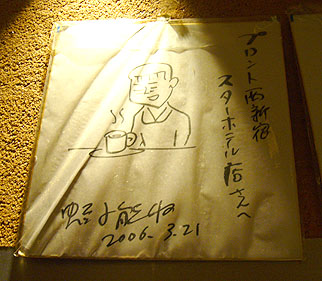 プロント西新宿
スターホテル店さんへ
蛭子能収
2006. 3.21